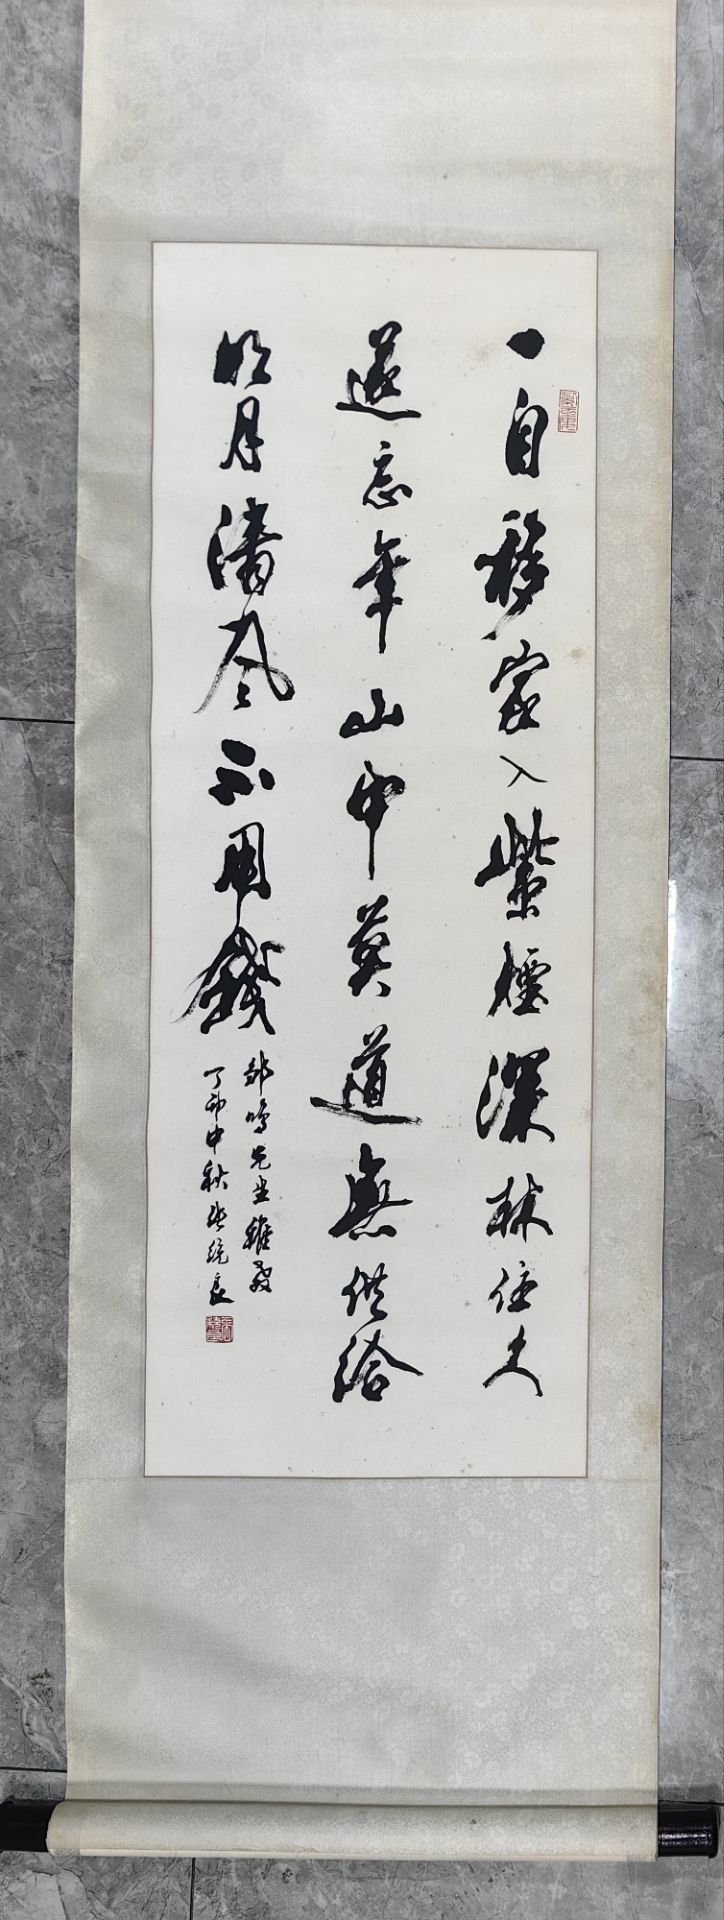 一自移家入紫烟深林住久
遂忘年山中莫道無供給
明月清风不用錢
邹鸣先生雅教
丁卯中秋张统良